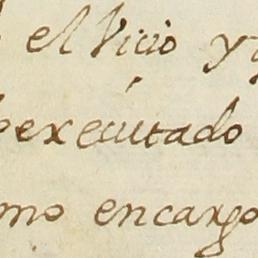 el Vicio y
executado
mo encargo